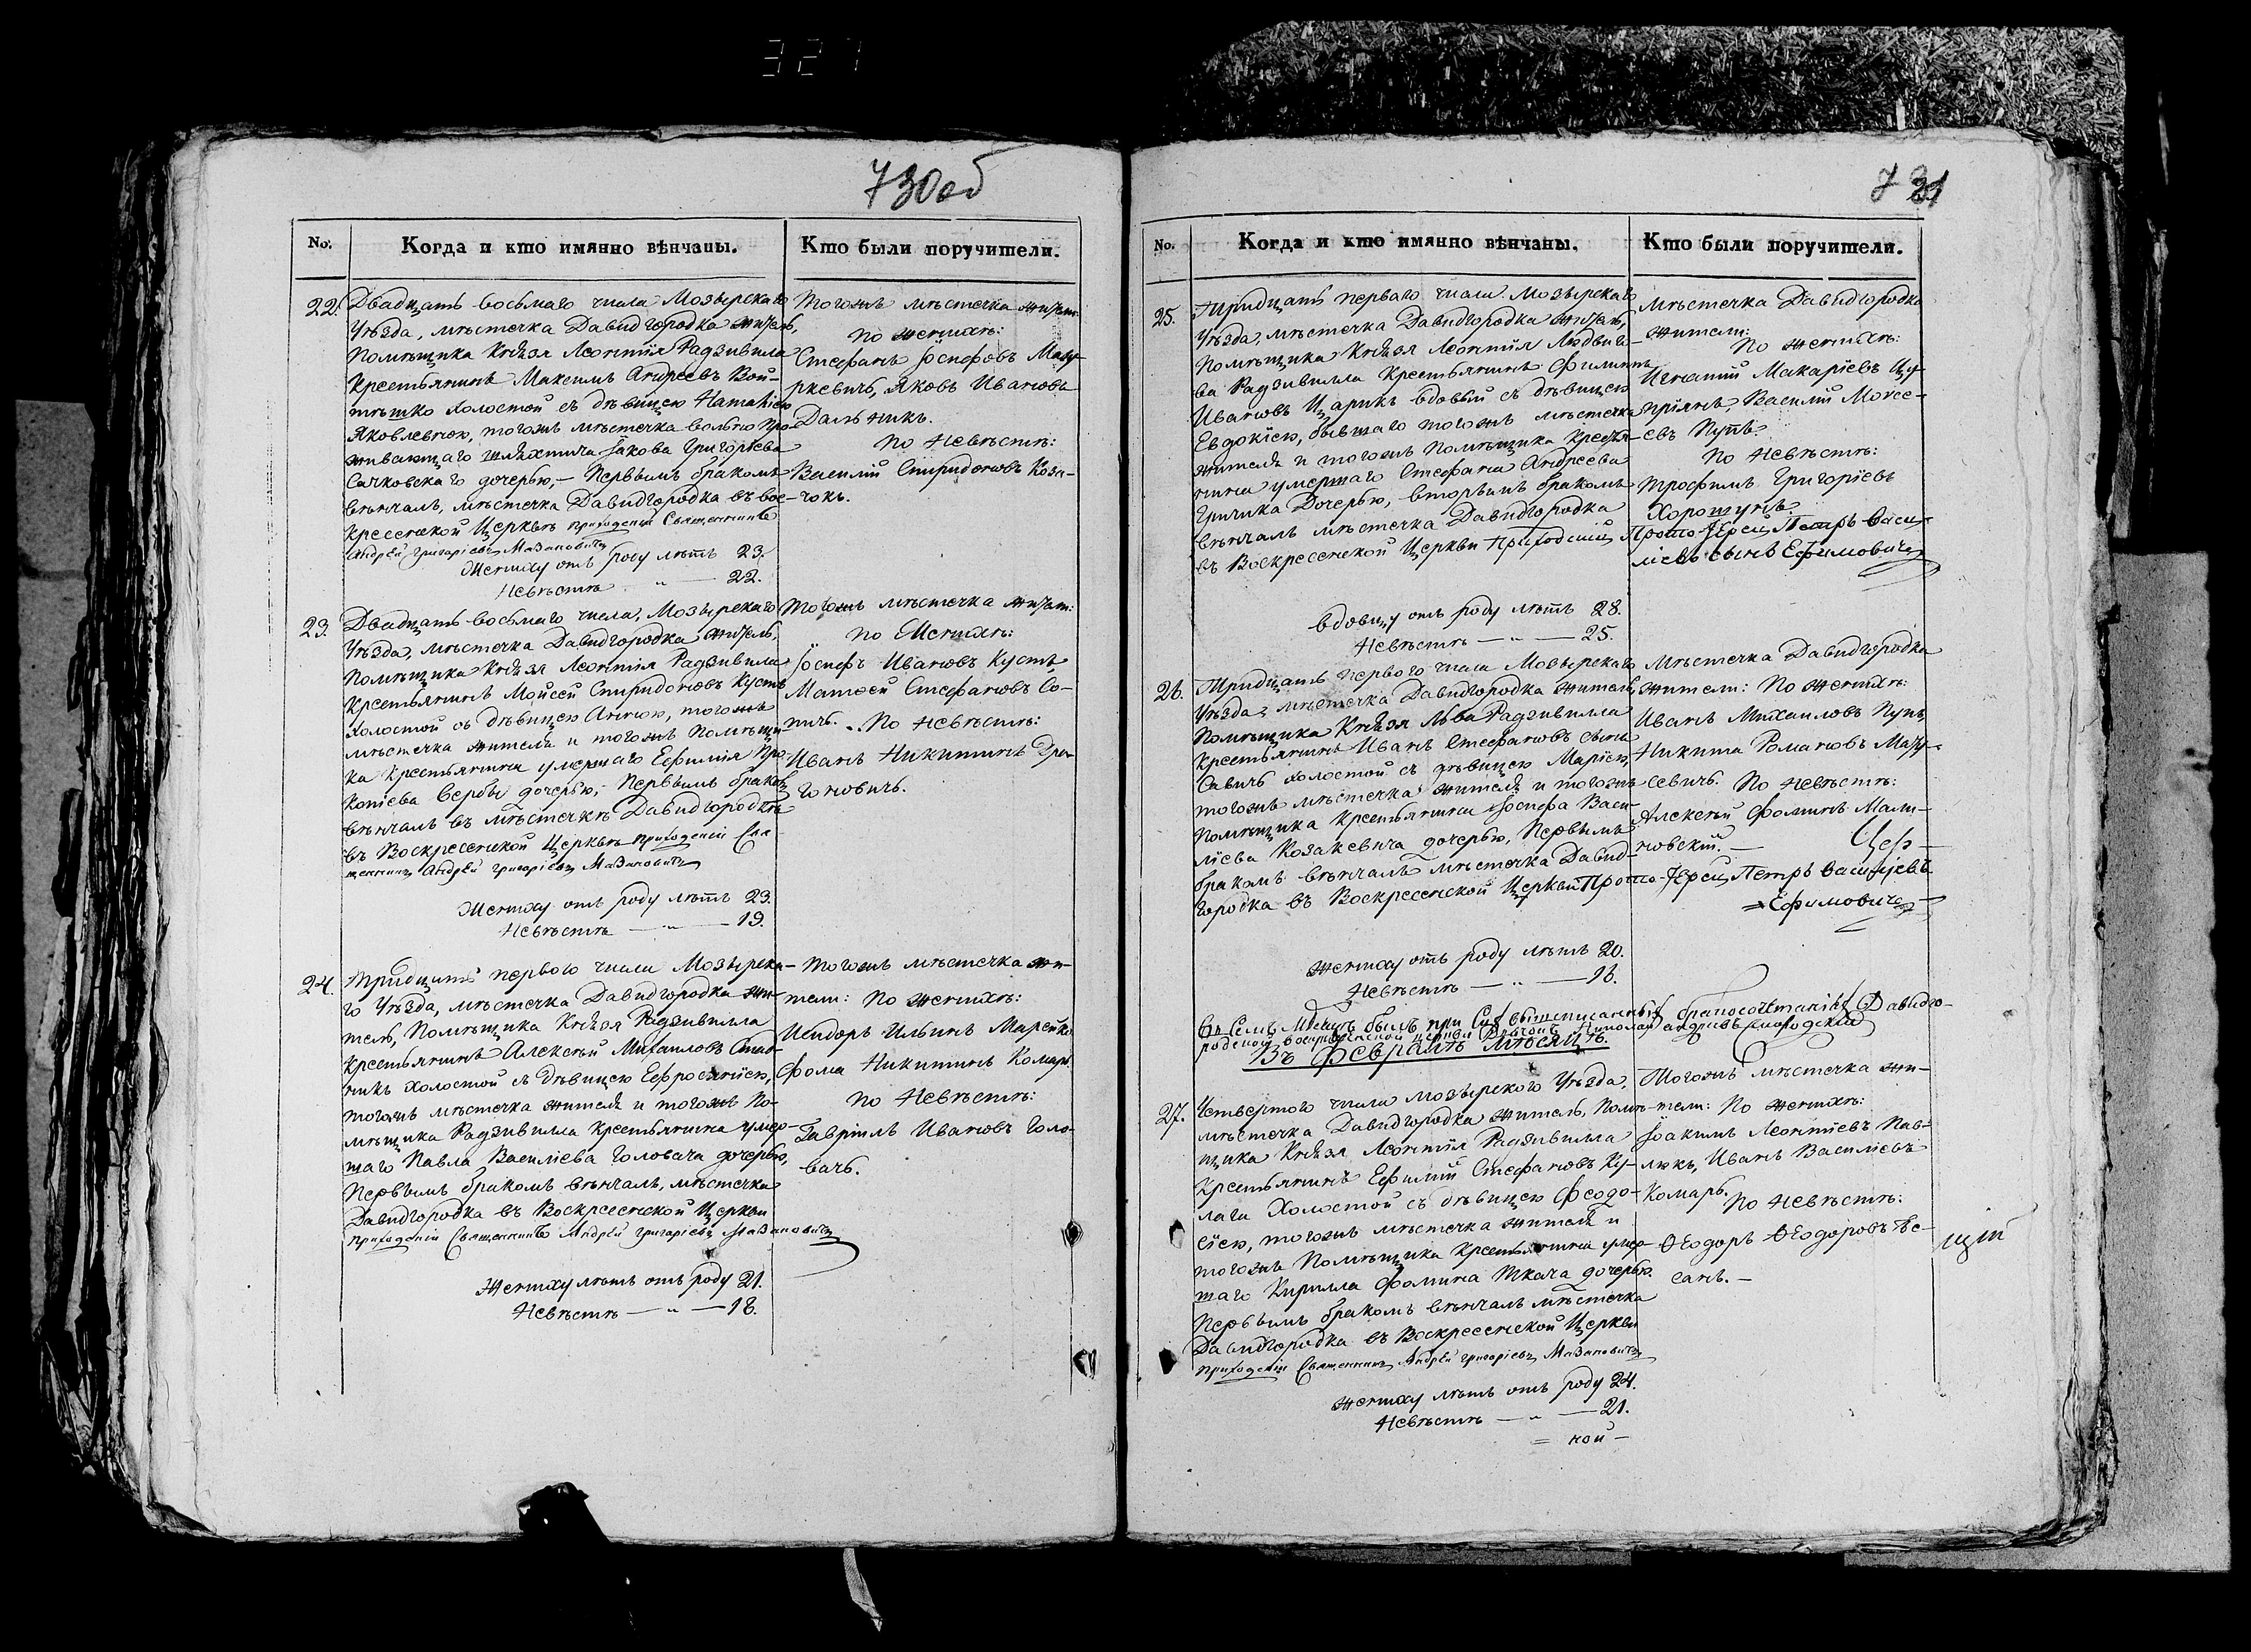 327
730 об
No. Когда и кто имянно вѣнчаны. Кто были поручители.
22. Двадцать восьмаго числа Мозырскаго
Уѣзда, мѣстечка Давидгородка житель,
Помѣщика Князя Леонтія Радзивила
Крестьянинъ Максимъ Андреевъ Вой-
тѣшко холостой съ дѣвицею Наталіею
Яковлевною, тогожъ мѣстечка вольно про-
живающаго шляхтича Іакова Григоріева
Сачковскаго дочерью, – Первымъ бракомъ
вѣнчалъ, мѣстечка Давидгородка въ вос-
кресенской Церквѣ приходскій Священникъ
Андрей Григоріевъ Мазановичъ
Жениху отъ роду лѣтъ 23.
Невѣстѣ — „ — 22.
Тогожъ мѣстечка жител:
по женихѣ:
Стефанъ Іосифовъ Мазу-
ркевичъ, Яковъ Ивановъ
Дашникъ.
По Невѣстѣ:
Василій Спиридоновъ Коза-
чокъ.
23. Двадцать восьмаго числа, Мозырскаго
Уѣзда, мѣстечка Давидгородка житель,
Помѣщика Князя Леонтія Радзивила
Крестьянинъ Мойсей Спиридоновъ Кустъ
Холостой съ дѣвицею Анною, тогожъ
мѣстечка жителя и тогожъ Помѣщи-
ка Крестьянина умершаго Ефимія Про-
копіева Вербы дочерью, – Первымъ бракомъ
вѣнчалъ въ мѣстечкѣ Давидгородкѣ
въ Воскресенской Церквѣ приходскій Свя-
щенникъ Андрей Григоріевъ Мазановичъ
Жениху отъ роду лѣтъ 23.
Невѣстѣ — „ — 19.
Тогожъ мѣстечка жител:
по Женихѣ:
Іосифъ Ивановъ Кустъ
Матѳей Стефановъ Со-
тичъ. По Невѣстѣ:
Иванъ Никитинъ Дра-
гоновичъ.
24. Тридцать первого числа Мозырска-
го Уѣзда, мѣстечка Давидгородка жи-
тель, Помѣщика Князя Радзивилла
Крестьянинъ Алексѣй Михаиловъ Став-
никъ холостой съ дѣвицею Ефросиніею,
тогожъ мѣстечка жителя и тогожъ По-
мѣщика Радзивилла Крестьянина умер-
шаго Павла Василіева Головача дочерью,
Первымъ бракомъ вѣнчалъ, мѣстечка
Давидгородка въ Воскресенской Церкви
приходскій Священникъ Андрей Григоріевъ Мазановичъ
Жениху лѣтъ отъ роду 21.
Невѣстѣ — „ — 18.
Тогожъ мѣстечка жи-
тели: По женихѣ:
Исидоръ Ильинъ Марейко
Фома Никитинъ Комаръ
По Невѣстѣ:
Гавріилъ Ивановъ Голо-
вачъ.
731
No. Когда и кто имянно вѣнчаны. Кто были поручители.
25. Тридцать перваго числа Мозырскаго
Уѣзда, мѣстечка Давидгородка житель,
Помѣщика Князя Леонтія Людвиго-
ва Радзивилла Крестьянинъ Филиппъ
Ивановъ Царикъ вдовый съ дѣвицею
Евдокіею, бывшаго тогожъ мѣстечка
жителя и тогожъ Помѣщика Крестья-
нина умершаго Стефана Андреева
Гричика Дочерью, – вторымъ бракомъ
вѣнчалъ мѣстечка Давидгородка
въ Воскресенской Церкви Приходскій Прото-Іерей Петръ Васи-
ліевъ сынъ Ефимовичъ
Вдовцу отъ роду лѣтъ 28.
Невѣстѣ — „ — 25.
Мѣстечка Давидгородка
жители:
По женихѣ:
Игнатій Макаріевъ Цу-
пріянъ, Василій Моисе-
евъ Пупъ.
По Невѣстѣ:
Трофимъ Григоріевъ
Хорошунъ.
26. Тридцать первого числа Мозырскаго
Уѣзда, мѣстечка Давидгородка житель,
Помѣщика Князя Льва Радзивилла
Крестьянинъ Иванъ Стефановъ сынъ
Савичъ холостой съ дѣвицею Маріею,
тогожъ мѣстечка жителя и тогожъ
Помѣщика Крестьянина Іосифа Васи-
ліева Козакевича дочерью, Первымъ
бракомъ вѣнчалъ мѣстечка Давид-
городка въ Воскресенской Церкви Прото-Іерей Петръ Василіевъ
Ефимовичъ
Жениху отъ роду лѣтъ 20.
Невѣстѣ — „ — 18.
Мѣстечка Давидгородка
жители: По женихѣ:
Иванъ Михаиловъ Пупъ,
Никита Романовъ Мазу-
севичъ. По Невѣстѣ:
Алексѣй Фоминъ Мали-
новскій. —
Цер-
Въ Семъ Мѣсяцѣ былъ при Сих вышеписанных бракосочетаніях Давидго-
родской воскресенской церкви Николай Андріевъ
Въ Февралѣ мѣсяцѣ.
27. Четвертого числа мозырского Уѣзда,
мѣстечка Давидгородка житель, Помѣ-
щика Князя Леонтія Радзивилла
Крестьянинъ Ефимій Стефановъ Ку-
лага Холостой съ дѣвицею Феодо-
сіею, тогожъ мѣстечка жителя и
тогожъ Помѣщика Крестьянина умер-
шаго Кирилла Фомина Ткача дочерью
Первымъ бракомъ вѣнчалъ мѣстечка
Давидгородка въ Воскресенской Церкви
приходскій Священникъ Андрей Григоріевъ Мазановичъ
Жениху лѣтъ отъ роду 24.
Невѣстѣ — „ — 21.
= кой –
Тогожъ мѣстечка жи-
тели: По женихѣ:
Іоакимъ Леонтіевъ Пав-
люкъ, Иванъ Василіевъ
Комаръ.
По Невѣстѣ:
Ѳеодоръ Ѳеодоровъ Пе-
санъ. —
щій